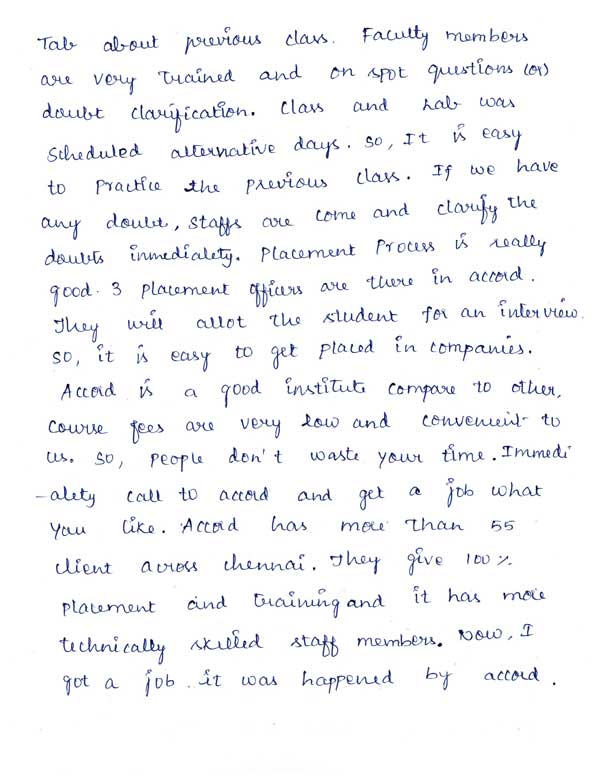 Tab about previous class. Faculty members
are very trained and on spot questions (or)
doubt clarification. Class and Lab was
scheduled alternative days. so, It is easy
to Practice the previous class. If we have
any doubt, staffs are come and clarify the
doubts inmedialety. Placement Process is really
good. 3 placement officers are there in accord.
They will allot the student for an interview.
so, it is easy to get placed in companies.
Accord is a good institute compare to other,
course fees are very low and convenient to
us. so, people don't waste your time. Immedi
-alety call to accord and get a job what
you like. Accord has more than 55
client across chennai. They give 100%
placement and training and it has more
technically skilled staff members. Now, I
got a job. it was happened by accord.